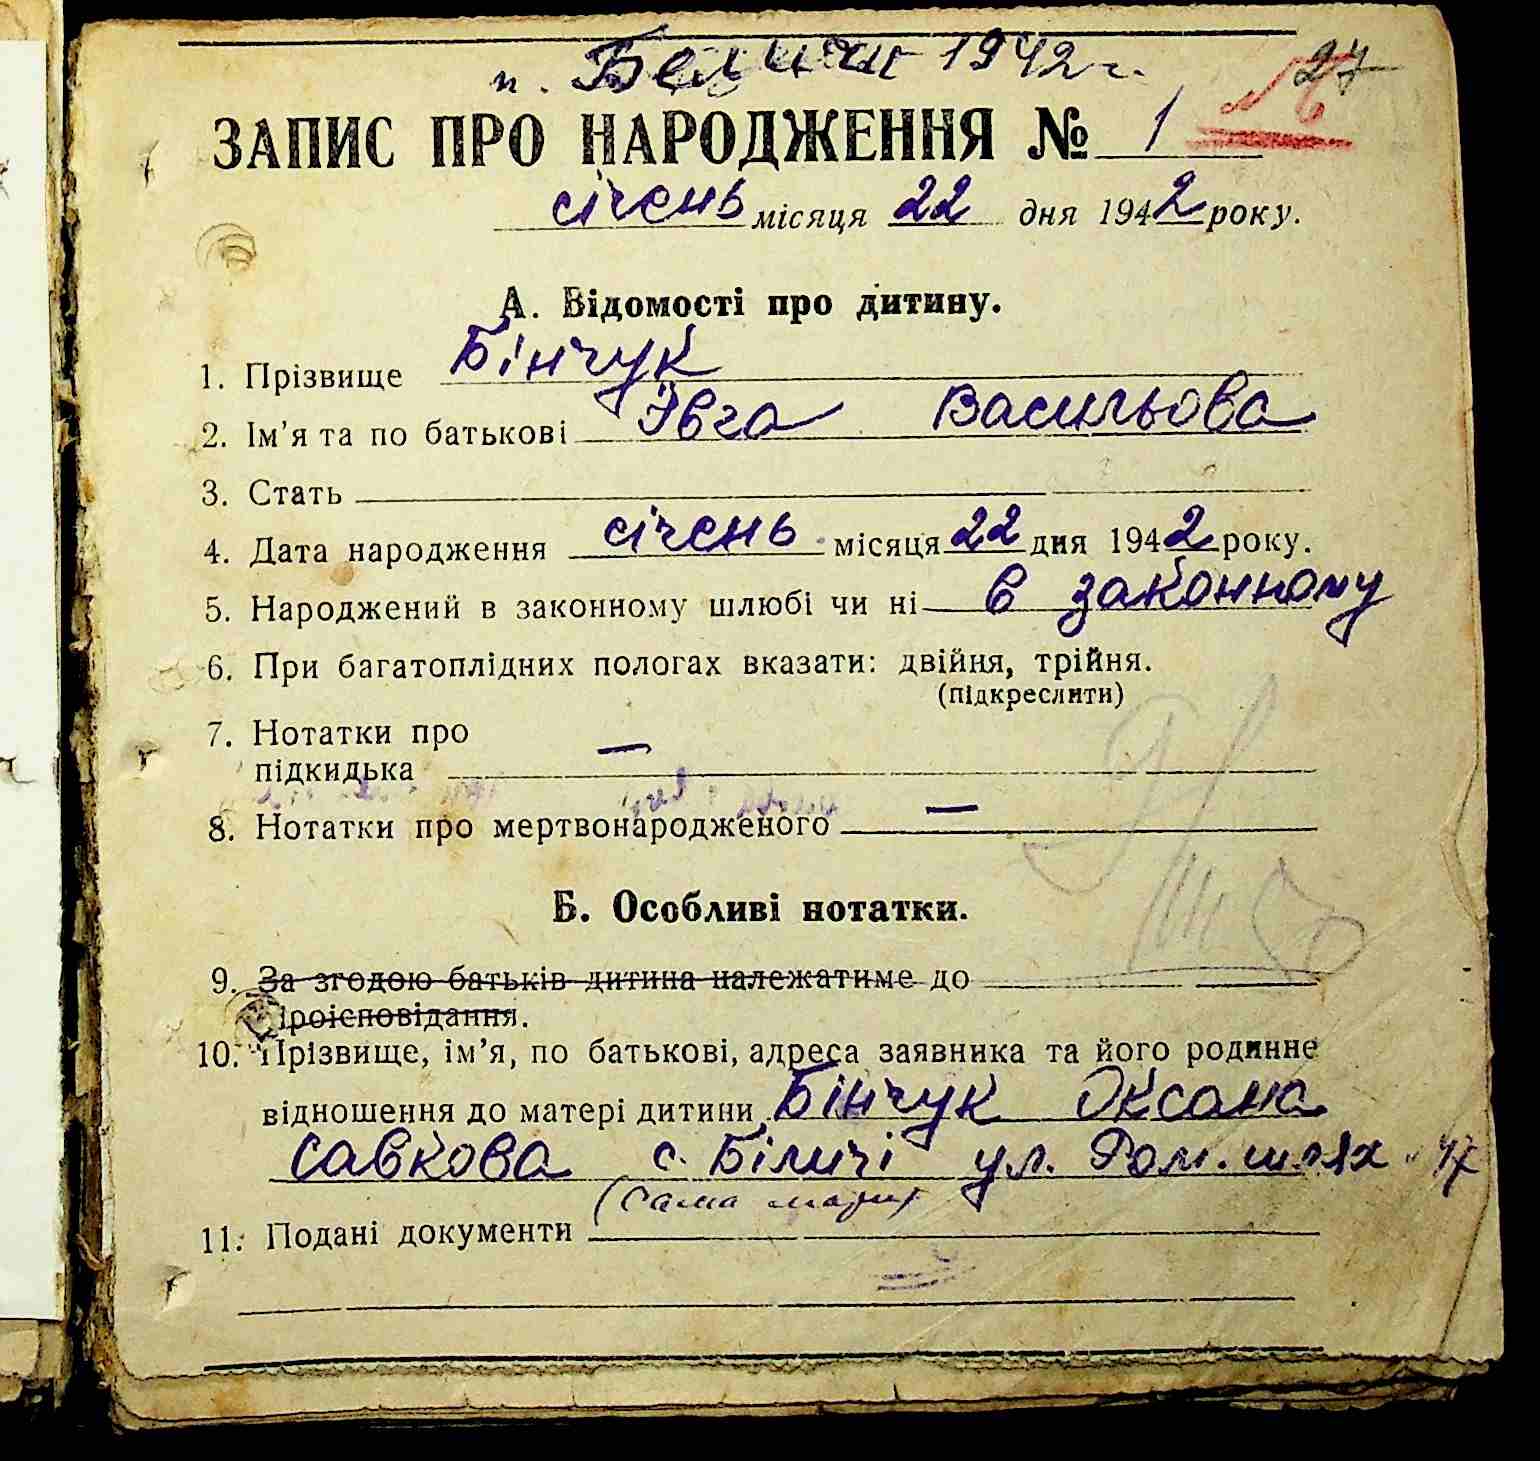 п. Беличи 1942 г. 27
ЗАПИС ПРО НАРОДЖЕННЯ № 1
січень місяця 22 дня 1942 року.
А. Відомості про дитину.
1. Прізвище Бінчук
2. Ім'я та по батькові Эвга Васильова
3. Стать
4. Дата народження січень місяця 22 дня 1942 року.
5. Народжений в законному шлюбі чи ні в законному
6. При багатоплідних пологах вказати: двійня, трійня.
(підкреслити)
7. Нотатки про —
підкидька
8. Нотатки про мертвонародженого —
Б. Особливі нотатки.
9. За згодою батьків дитина належатиме до
віроісповідання.
10. Прізвище, ім'я, по батькові, адреса заявника та його родинне
відношення до матері дитини Бінчук Оксана
Савкова с. Біличі ул. Ром. шлях 47
(сама мати)
11. Подані документи